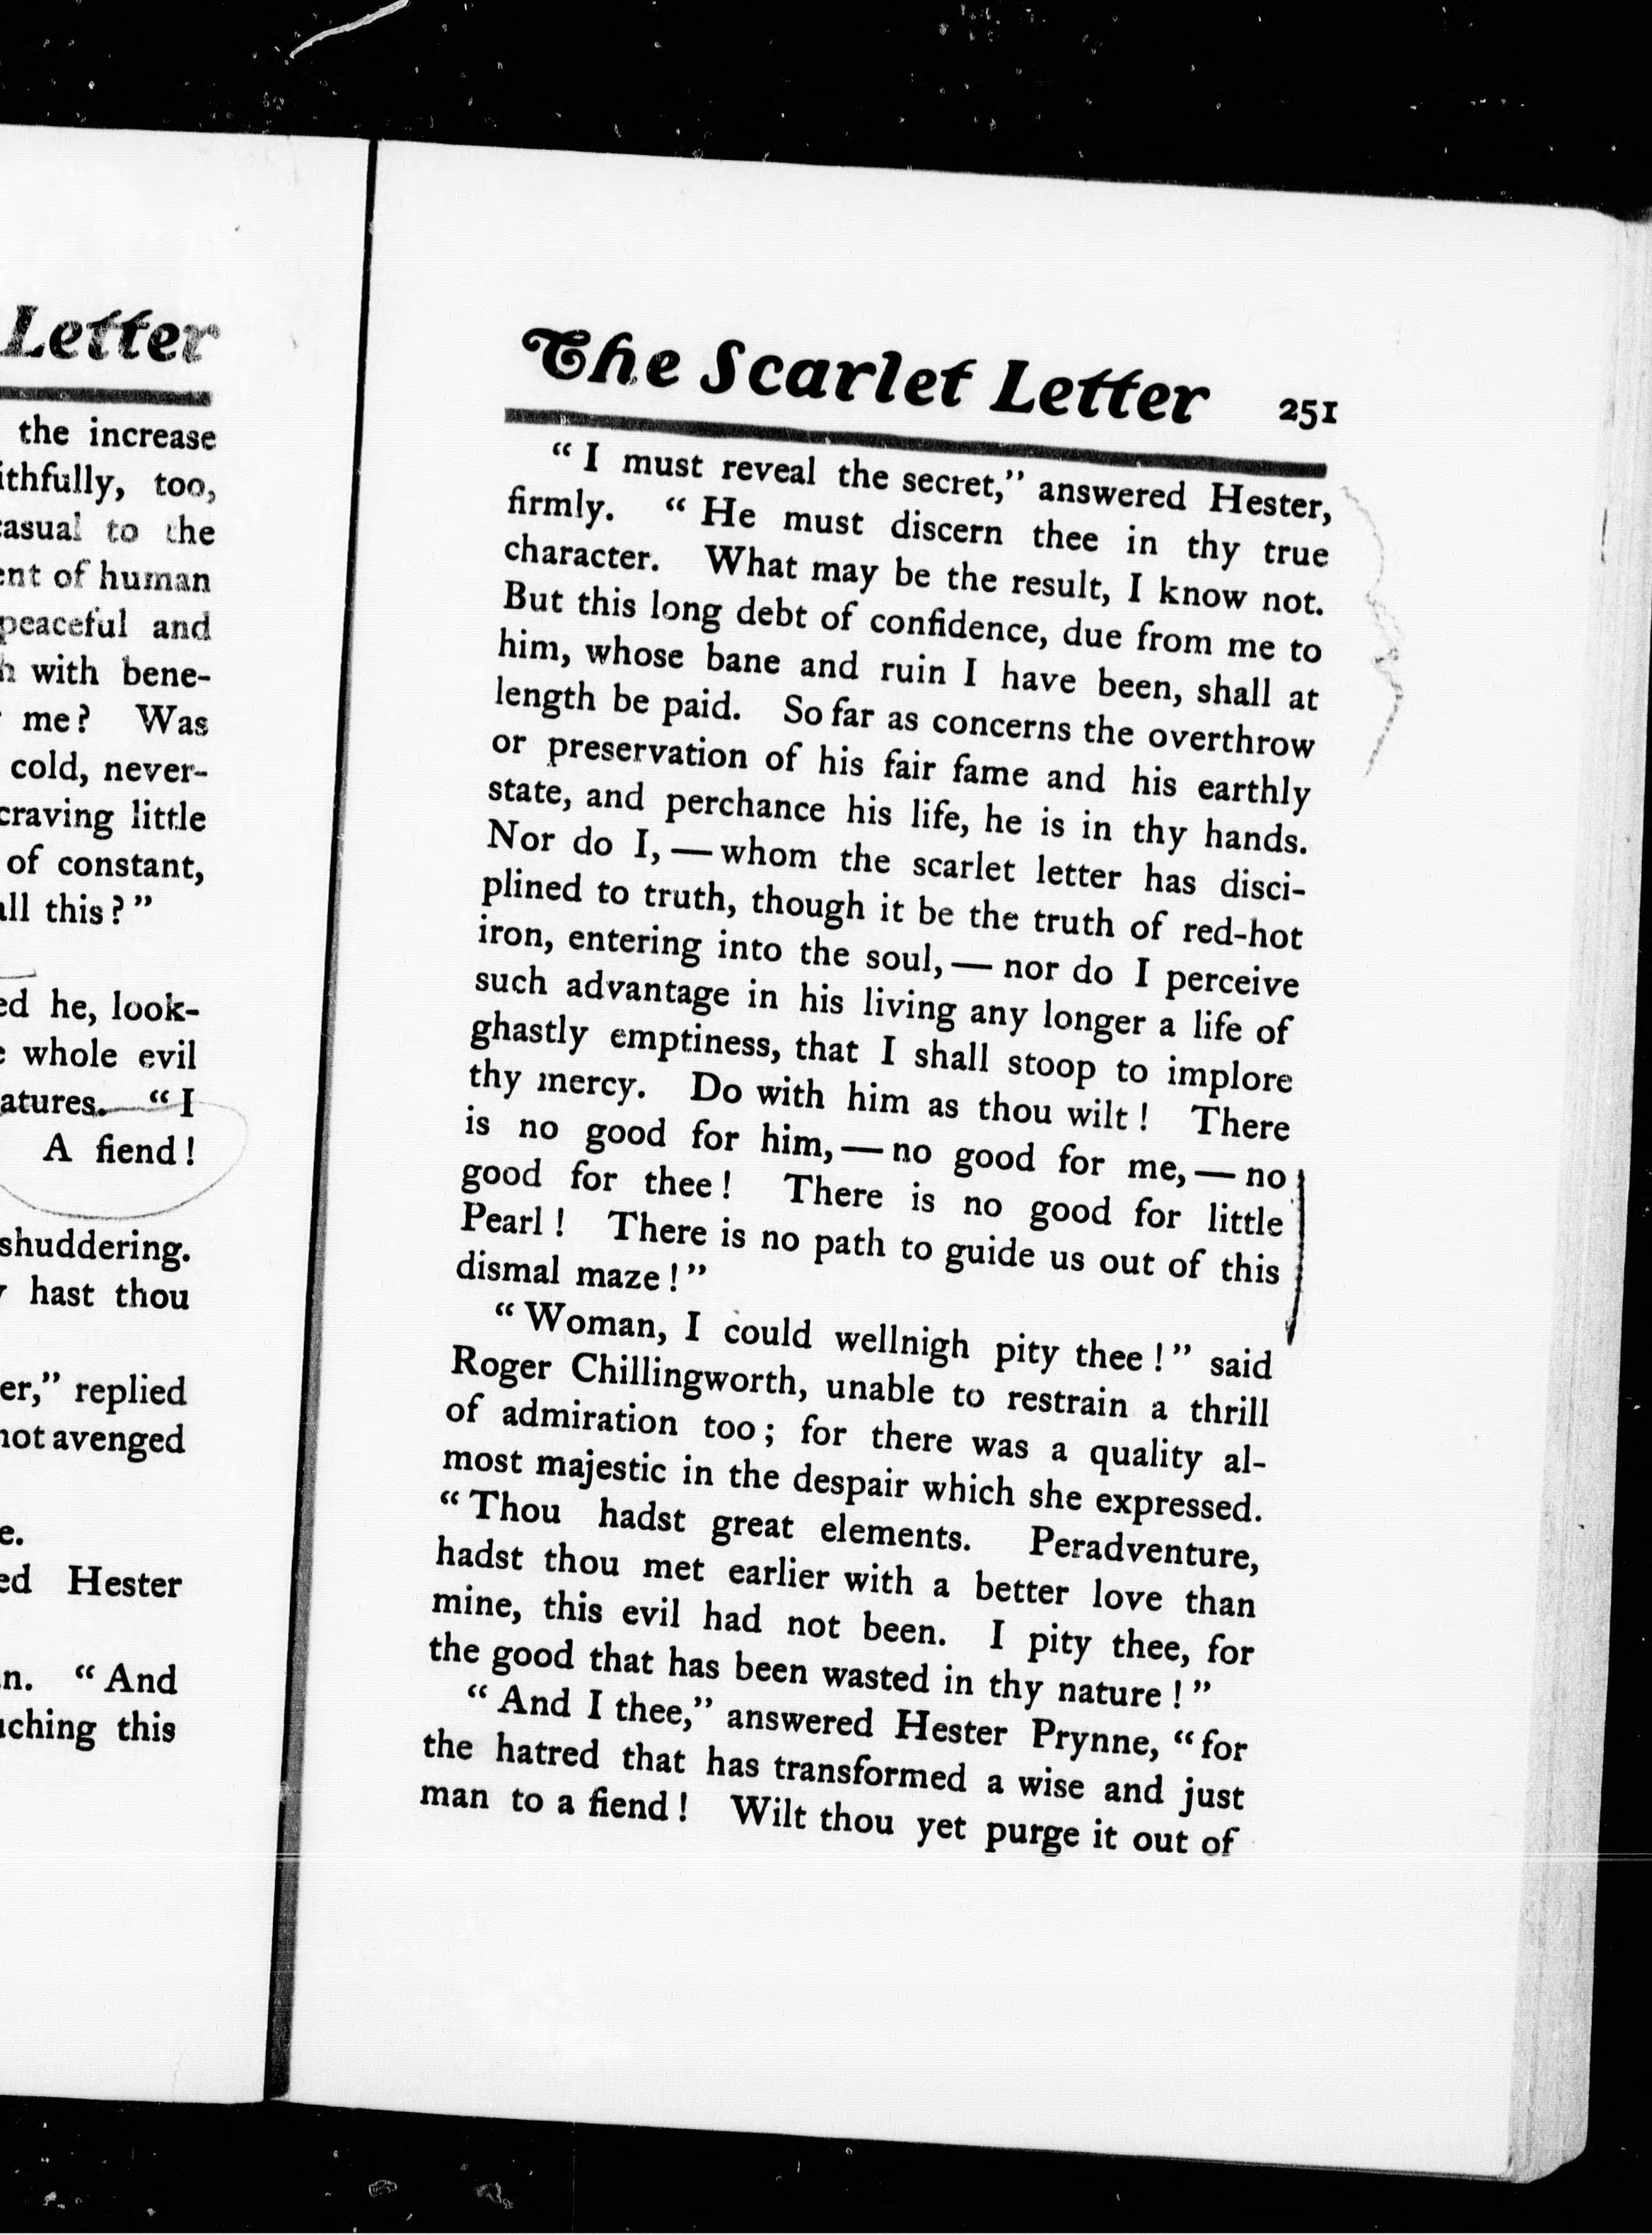 Letter
the increase
too,
to the
of human
peaceful and
with bene-
me? Was
cold, never-
craving little
of constant,
this?”
he, look-
whole evil
“I
A fiend!
shuddering.
hast thou
replied
not avenged
Hester
“And
this
The Scarlet Letter 251
“I must reveal the secret,” answered Hester,
firmly. “He must discern thee in thy true
character. What may be the result, I know not.
But this long debt of confidence, due from me to
him, whose bane and ruin I have been, shall at
length be paid. So far as concerns the overthrow
or preservation of his fair fame and his earthly
state, and perchance his life, he is in thy hands.
Nor do I,—whom the scarlet letter has disci-
plined to truth, though it be the truth of red-hot
iron, entering into the soul,—nor do I perceive
such advantage in his living any longer a life of
ghastly emptiness, that I shall stoop to implore
thy mercy. Do with him as thou wilt! There
is no good for him,—no good for me,—no
good for thee! There is no good for little
Pearl! There is no path to guide us out of this
dismal maze!”
“Woman, I could wellnigh pity thee!” said
Roger Chillingworth, unable to restrain a thrill
of admiration too; for there was a quality al-
most majestic in the despair which she expressed.
“Thou hadst great elements. Peradventure,
hadst thou met earlier with a better love than
mine, this evil had not been. I pity thee, for
the good that has been wasted in thy nature!”
“And I thee,” answered Hester Prynne, “for
the hatred that has transformed a wise and just
man to a fiend! Wilt thou yet purge it out of